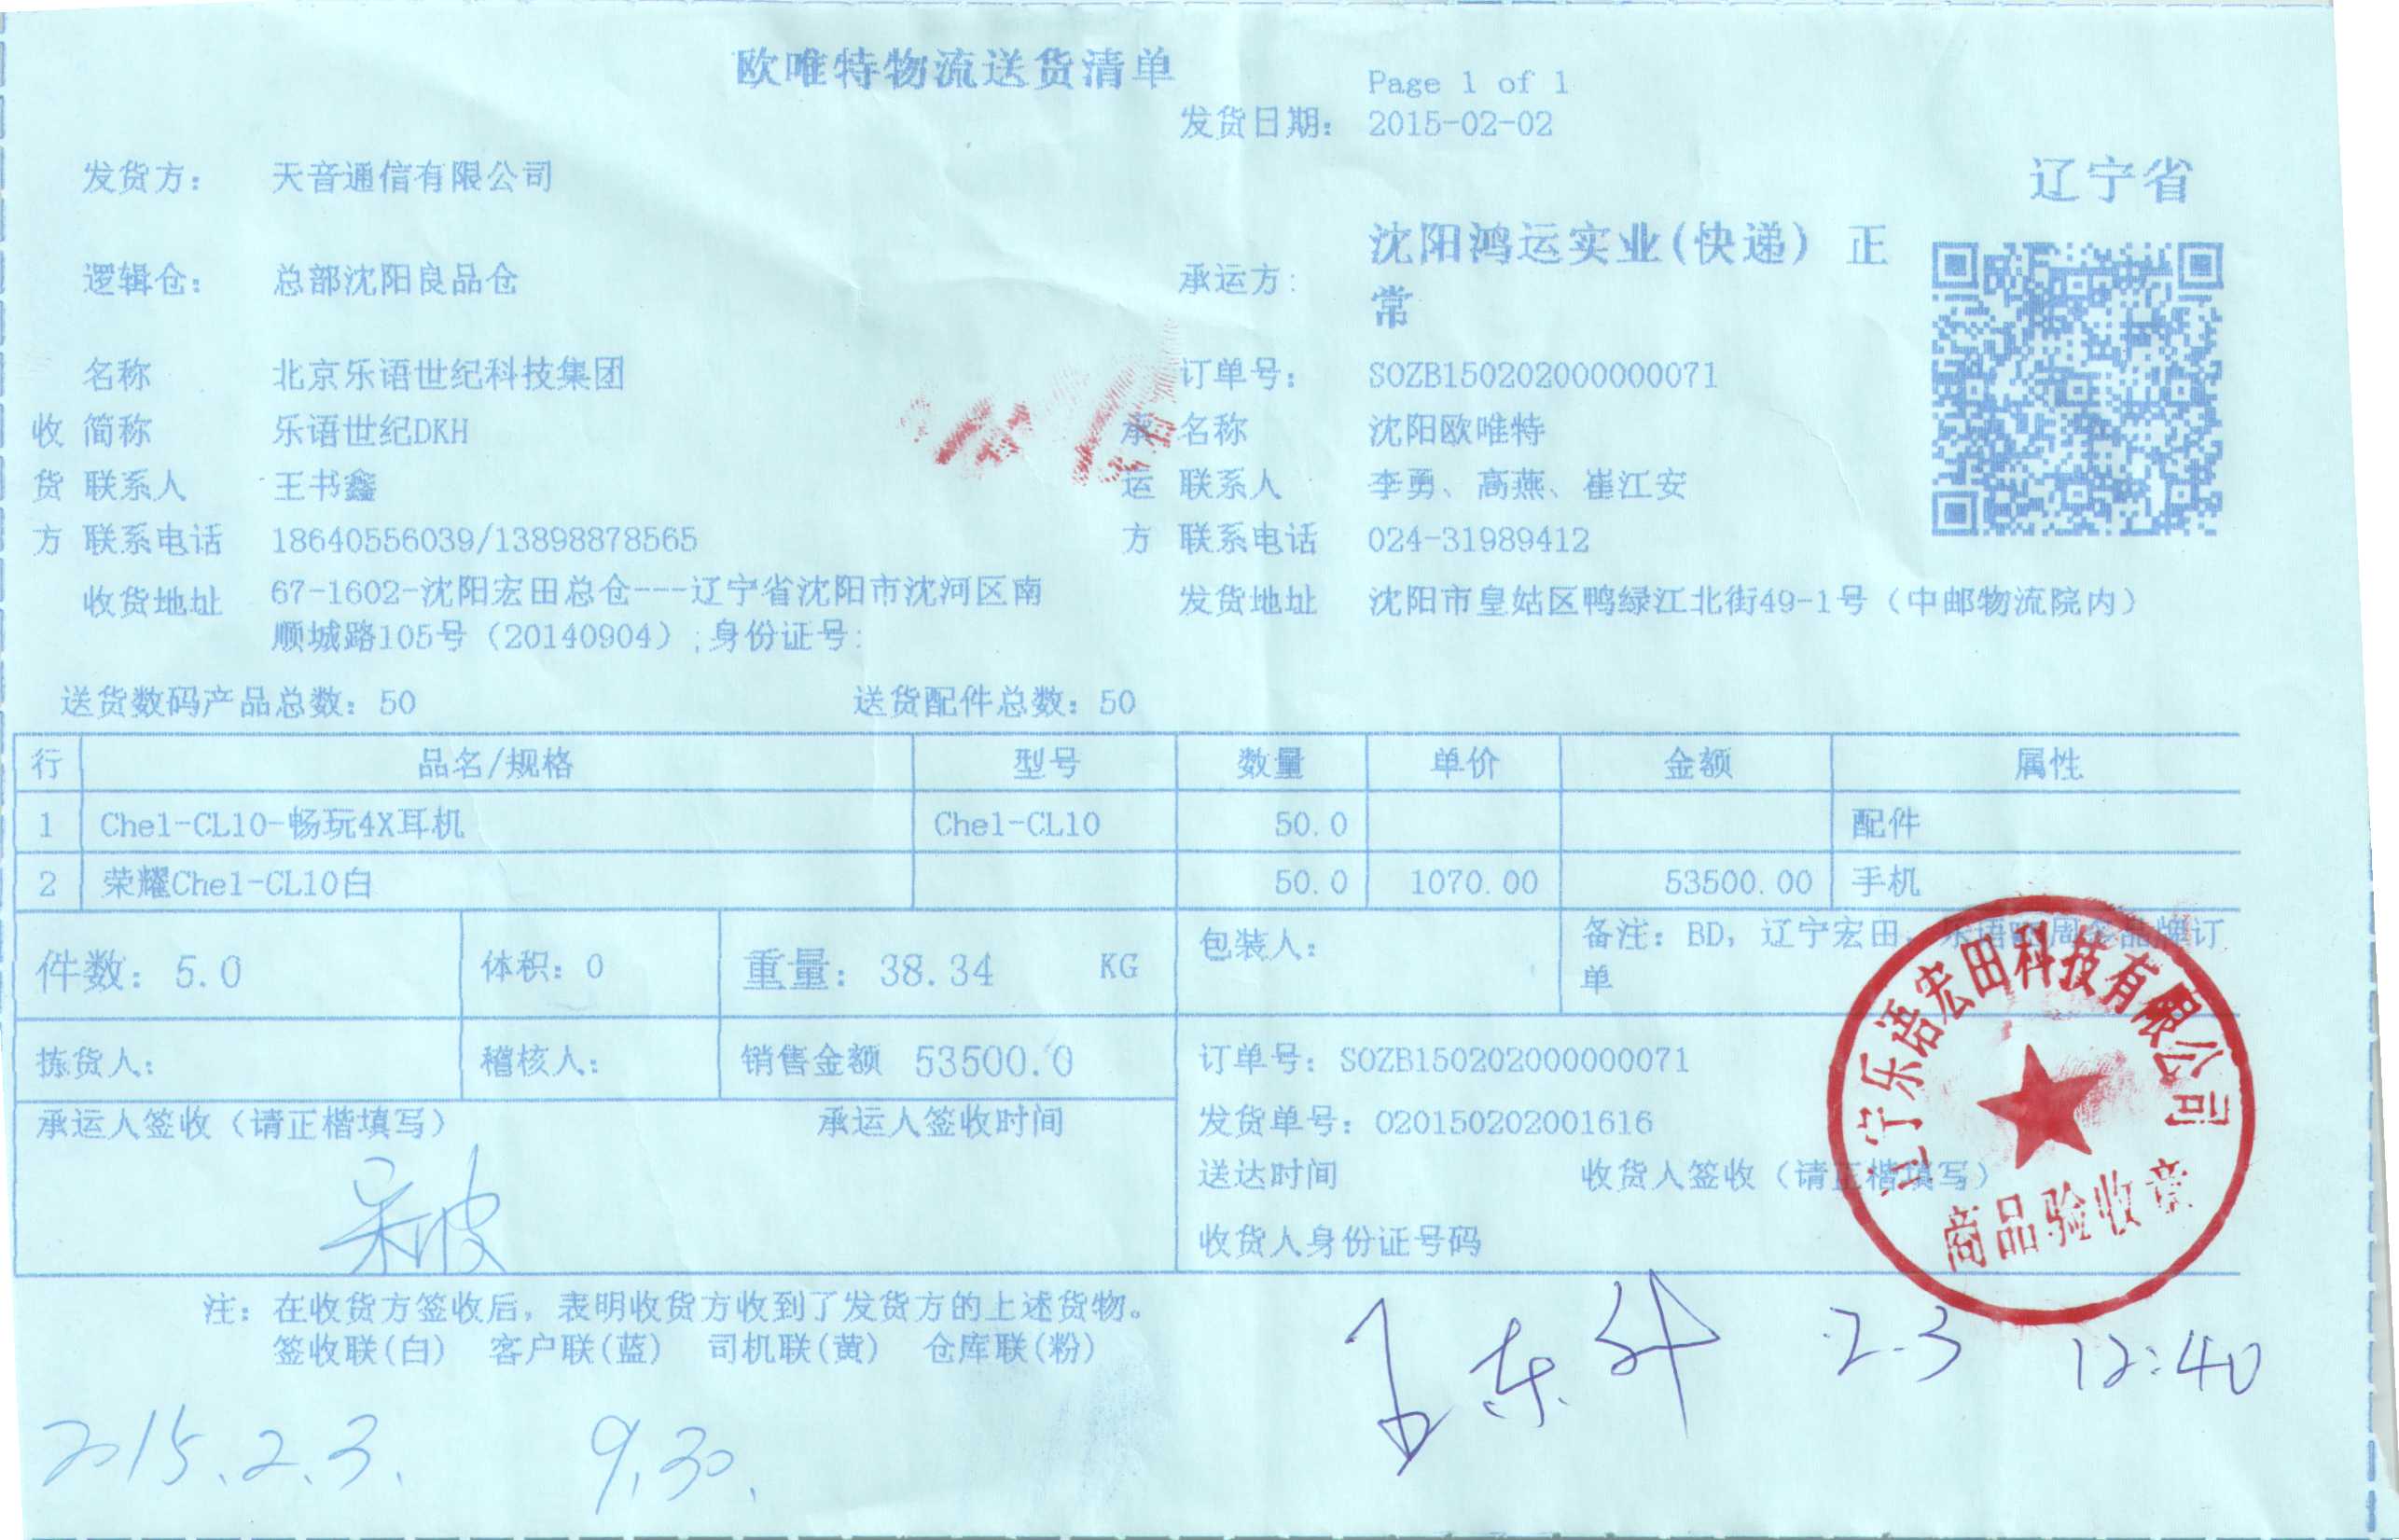 欧唯特物流送货清单
Page 1 of 1
发货日期: 2015-02-02
发货方: 天音通信有限公司
辽宁省
逻辑仓: 总部沈阳良品仓
承运方: 沈阳鸿运实业(快递) 正
常
名称 北京乐语世纪科技集团
订单号: SOZB150202000000071
收 简称 乐语世纪DKH
承 名称 沈阳欧唯特
货 联系人 王书鑫
运 联系人 李勇、高燕、崔江安
方 联系电话 18640556039/13898878565
方 联系电话 024-31989412
收货地址 67-1602-沈阳宏田总仓---辽宁省沈阳市沈河区南
顺城路105号（20140904）;身份证号:
发货地址 沈阳市皇姑区鸭绿江北街49-1号（中邮物流院内）
送货数码产品总数: 50 送货配件总数: 50
行 品名/规格 型号 数量 单价 金额 属性
1 Che1-CL10-畅玩4X耳机 Che1-CL10 50.0 配件
2 荣耀Che1-CL10白 50.0 1070.00 53500.00 手机
件数: 5.0 体积: 0 重量: 38.34 KG 包装人:
备注: BD, 辽宁宏田, 乐语 品牌订
单
拣货人: 稽核人: 销售金额 53500.0
订单号: SOZB150202000000071
承运人签收（请正楷填写） 承运人签收时间
发货单号: 020150202001616
送达时间 收货人签收（请正楷填写）
收货人身份证号码
辽宁乐语宏田科技有限公司
商品验收章
注: 在收货方签收后, 表明收货方收到了发货方的上述货物。
签收联(白) 客户联(蓝) 司机联(黄) 仓库联(粉)
2.3 12:40
2015.2.3. 9.30.